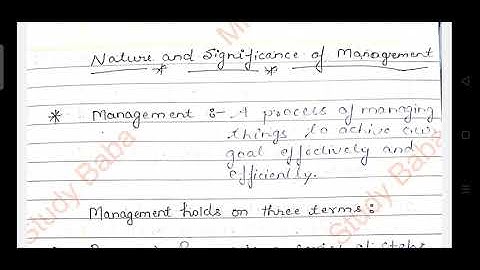 Nature and Significance of Management
* Management :- A process of managing
things to achive our
goal effectively and
efficiently.
Management holds on three terms :
Study Baba
Study Baba